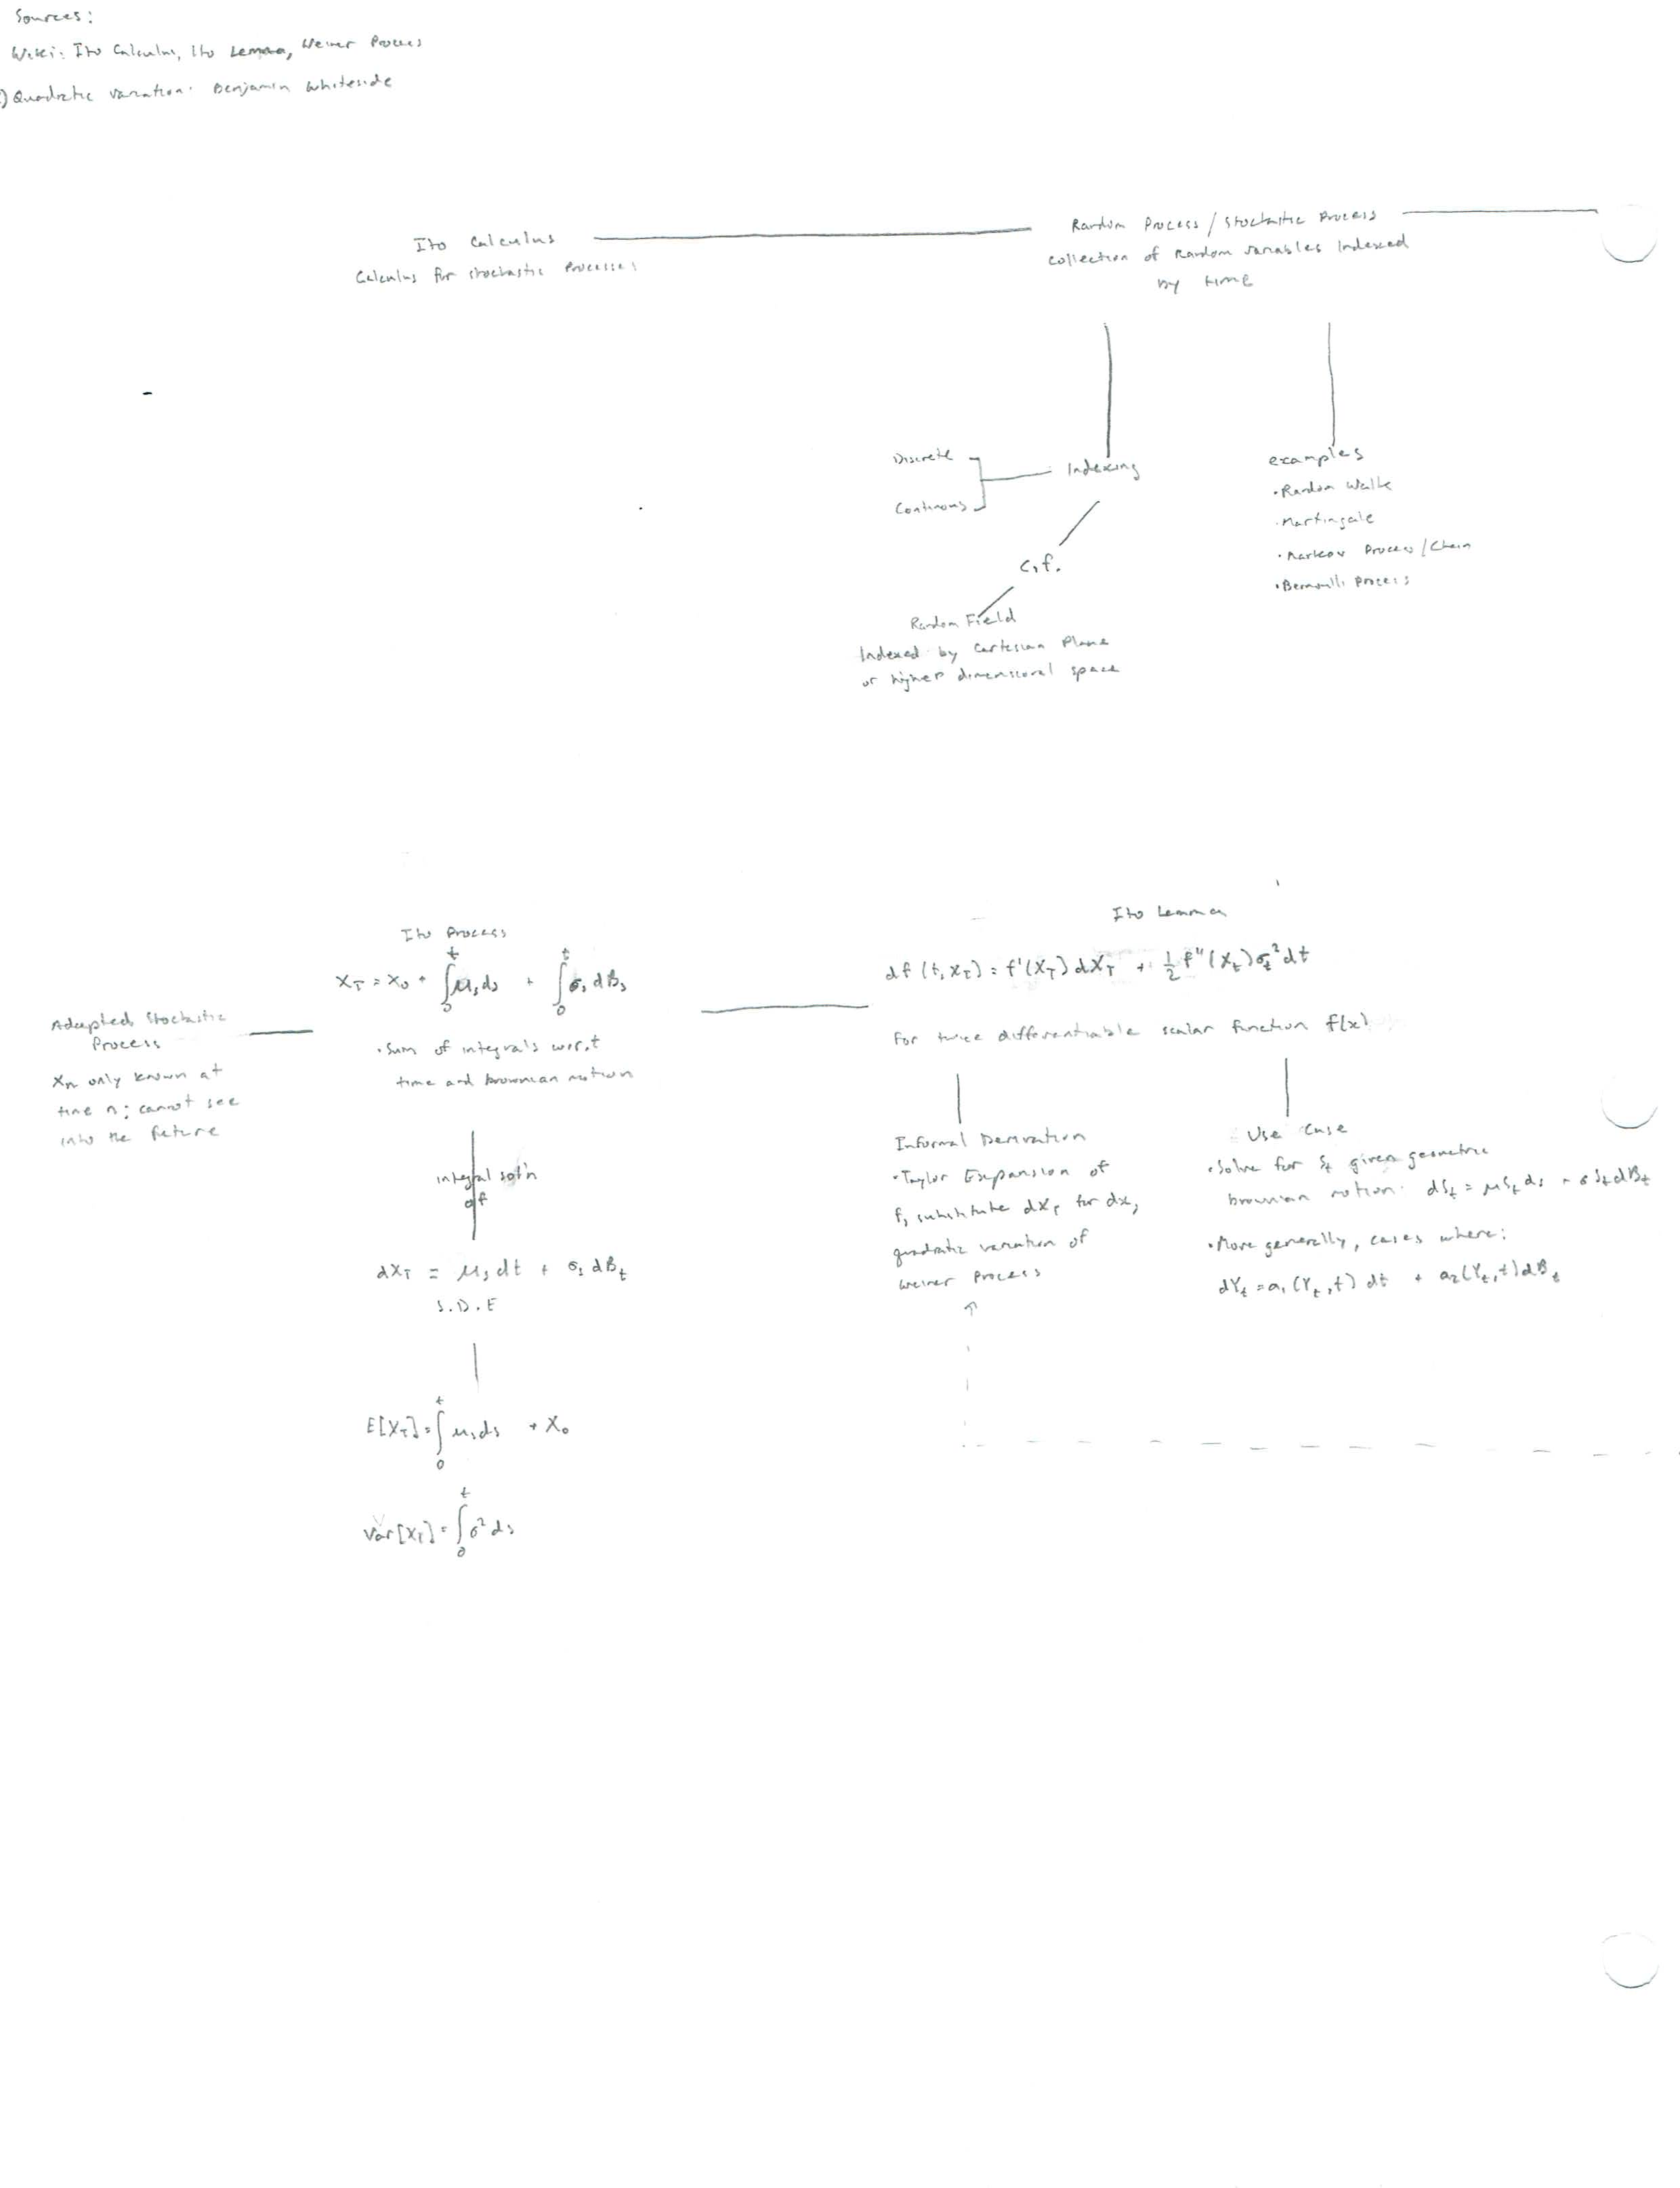 Sources:
Wiki: Ito Calculus, Ito Lemma, Weiner Process
) Quadratic Variation: Benjamin Whiteside
Ito Calculus
Calculus for stochastic processes
Random Process / Stochastic Process
collection of Random variables Indexed
by time
Discrete
Continous
Indexing
c.f.
Random Field
Indexed by Cartesian Plane
or higher dimensional space
examples
• Random Walk
• Martingale
• Markov Process / Chain
• Bernoulli Process
Adapted Stochastic
Process
Xₙ only known at
time n; cannot see
into the future
Ito Process
X_T = X_0 + ∫_0^t μ_s ds + ∫_0^t σ_s dB_s
• Sum of integrals w.r.t
time and brownian motion
integral sol'n
of
dX_T = μ_s dt + σ_s dB_t
S.D.E
E[X_T] = ∫_0^t μ_s ds + X_0
Var[X_T] = ∫_0^t σ² ds
Ito Lemma
df(t, X_T) = f'(X_T) dX_T + ½ f''(X_t) σ_t² dt
For twice differentiable scalar function f(x)
Informal Derivation
• Taylor Expansion of
f, substitute dX_T for dx,
quadratic variation of
Weiner Process
Use Case
• Solve for S_t given geometric
brownian motion: dS_t = μS_t ds + σS_t dB_t
• More generally, cases where:
dY_t = a₁(Y_t, t) dt + a₂(Y_t, t) dB_t